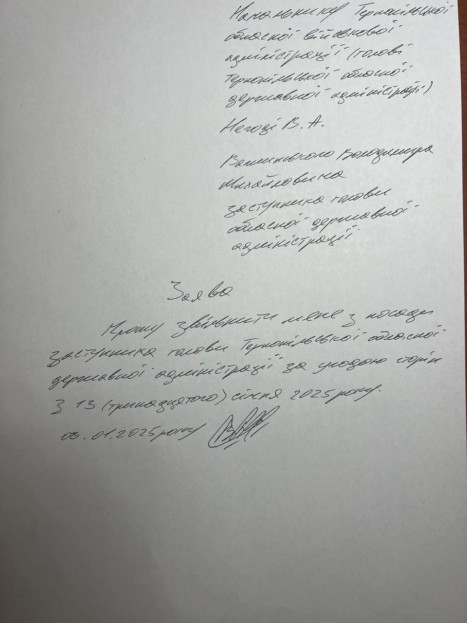 Начальнику Тернопільської
обласної військової
адміністрації (голові
Тернопільської обласної
державної адміністрації)
Негоді В. А.
Важинського Володимира
Михайловича
заступника голови
обласної державної
адміністрації
Заява
Прошу звільнити мене з посади
заступника голови Тернопільської обласної
державної адміністрації за угодою сторін
з 13 (тринадцятого) січня 2025 року.
01.2025 року